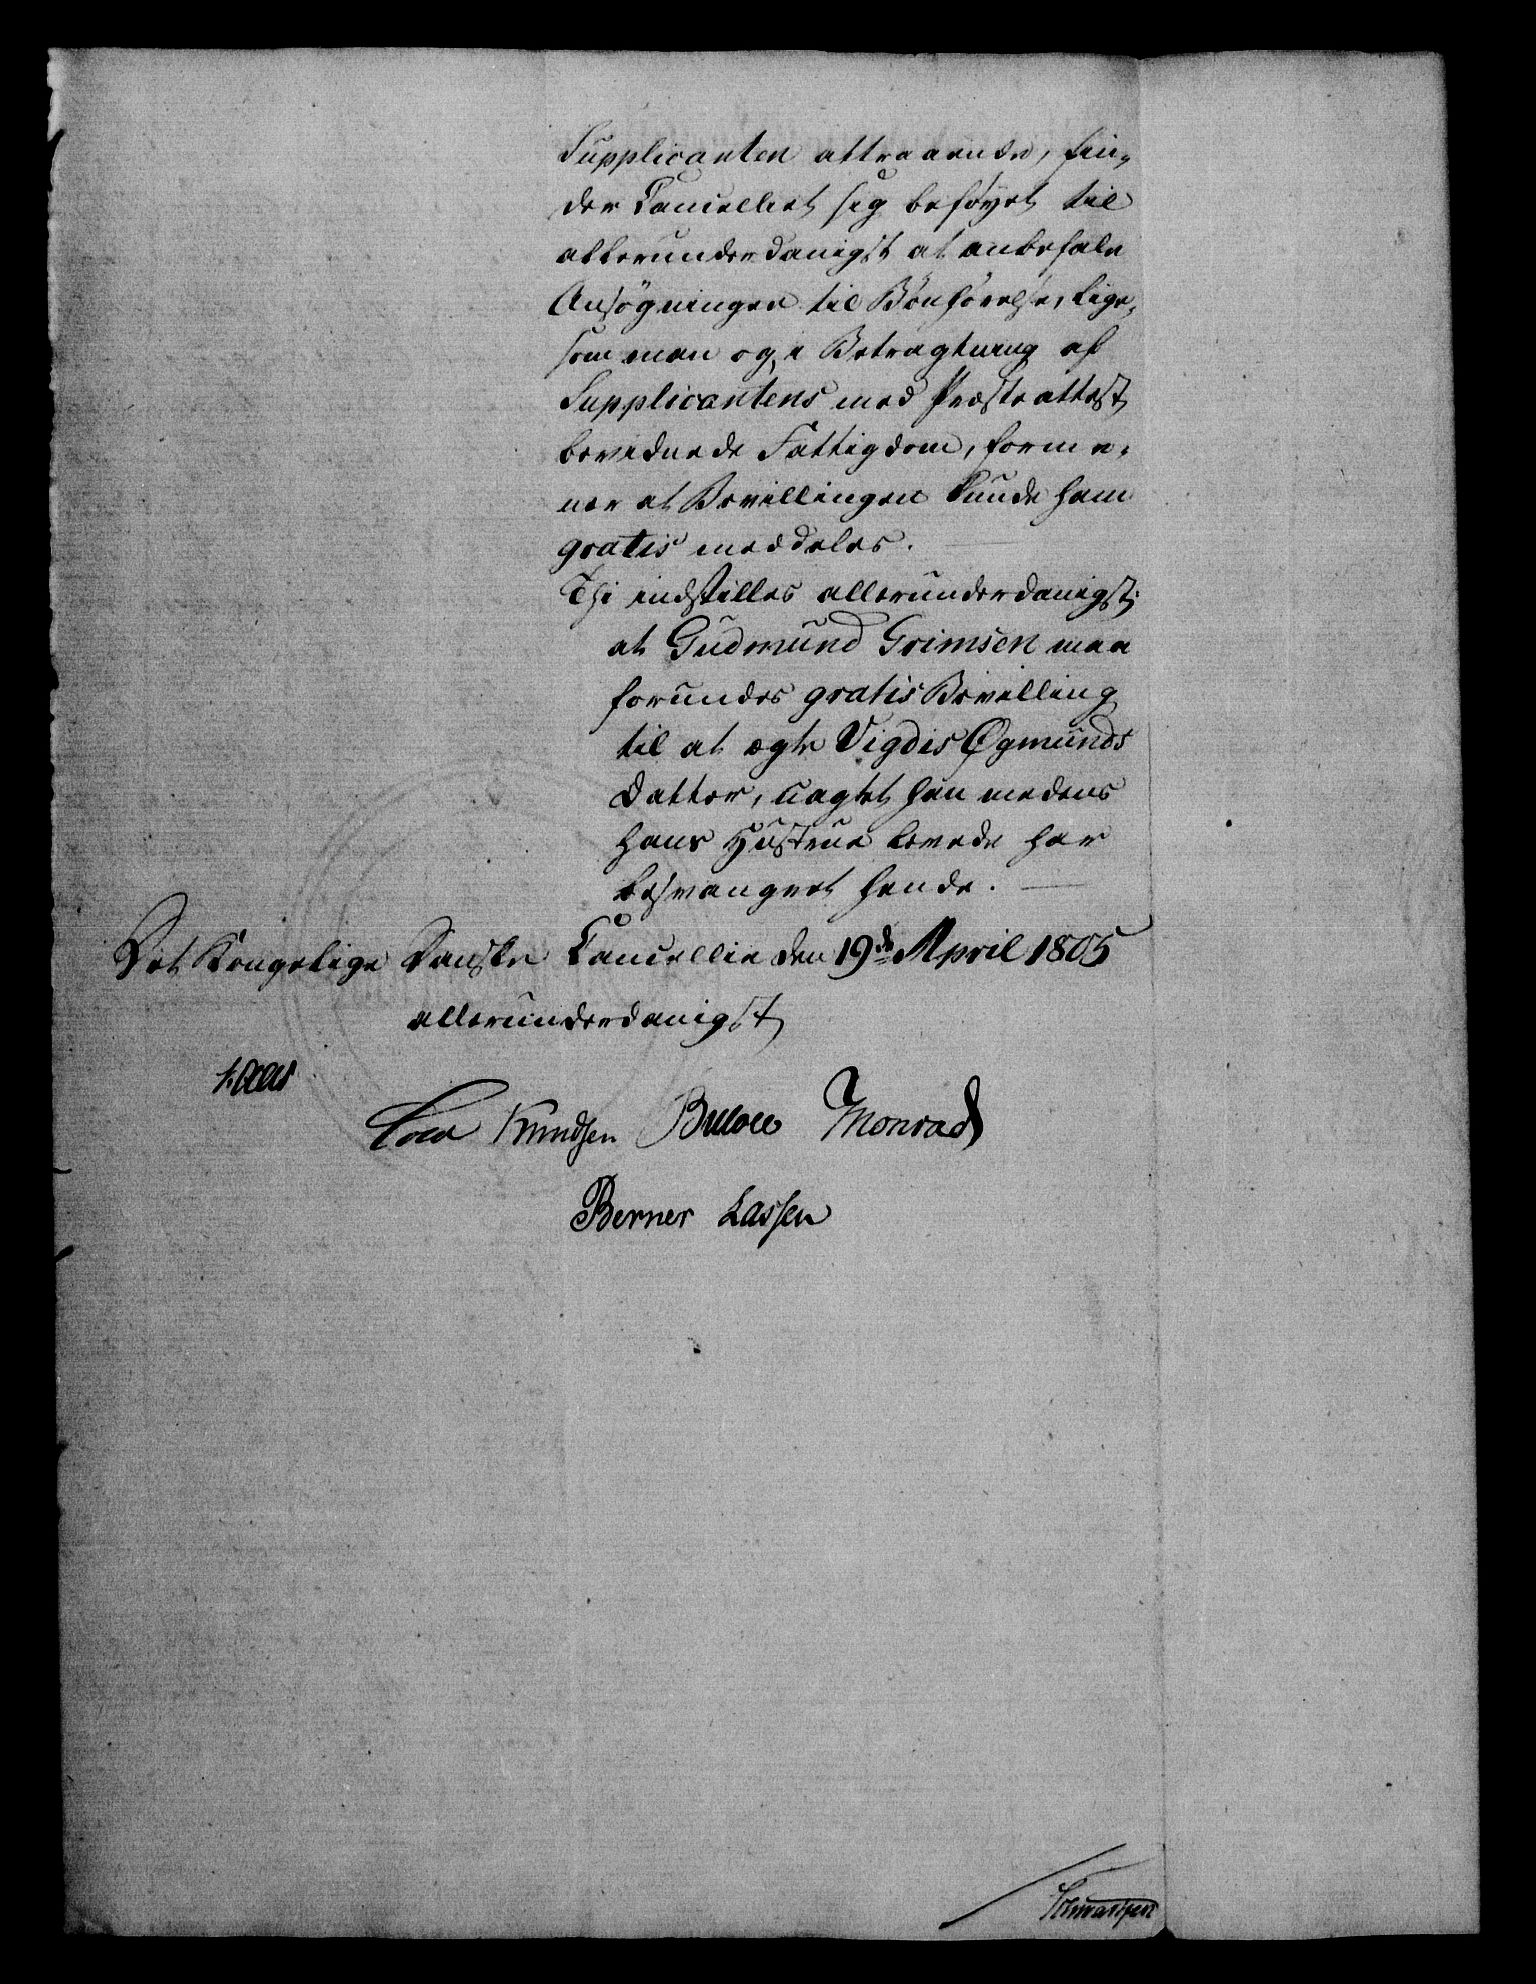 Supplicanten attraaende, fin„
der Cancelliet sig beföyet til
allerunderdanigst at anbefale
Ansögningen til Bönhörelse, lige„
som man og, i Betragtning af
Supplicantens med Præsteattest
beviidnede Fattigdom, forme„
ner at Bevillingen kunde ham
gratis meddeles.
Thi indstilles allerunderdanigst:
at Gudmund Grimsen maa
forundes gratis Bevilling
til at ægte Vigdis Øgmunds
Datter, uagtet han medens
hans Hustrue levede har
besvangret hende.
Det Kongelige Danske Cancellie den 19de April 1805
allerunderdanigst
Cold Knudsen Bülow Monrad
Berner Lassen